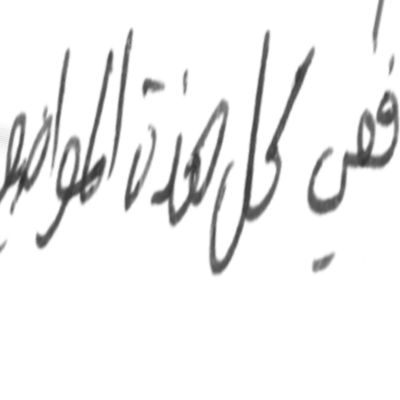 ففي كل هذة المواضيع